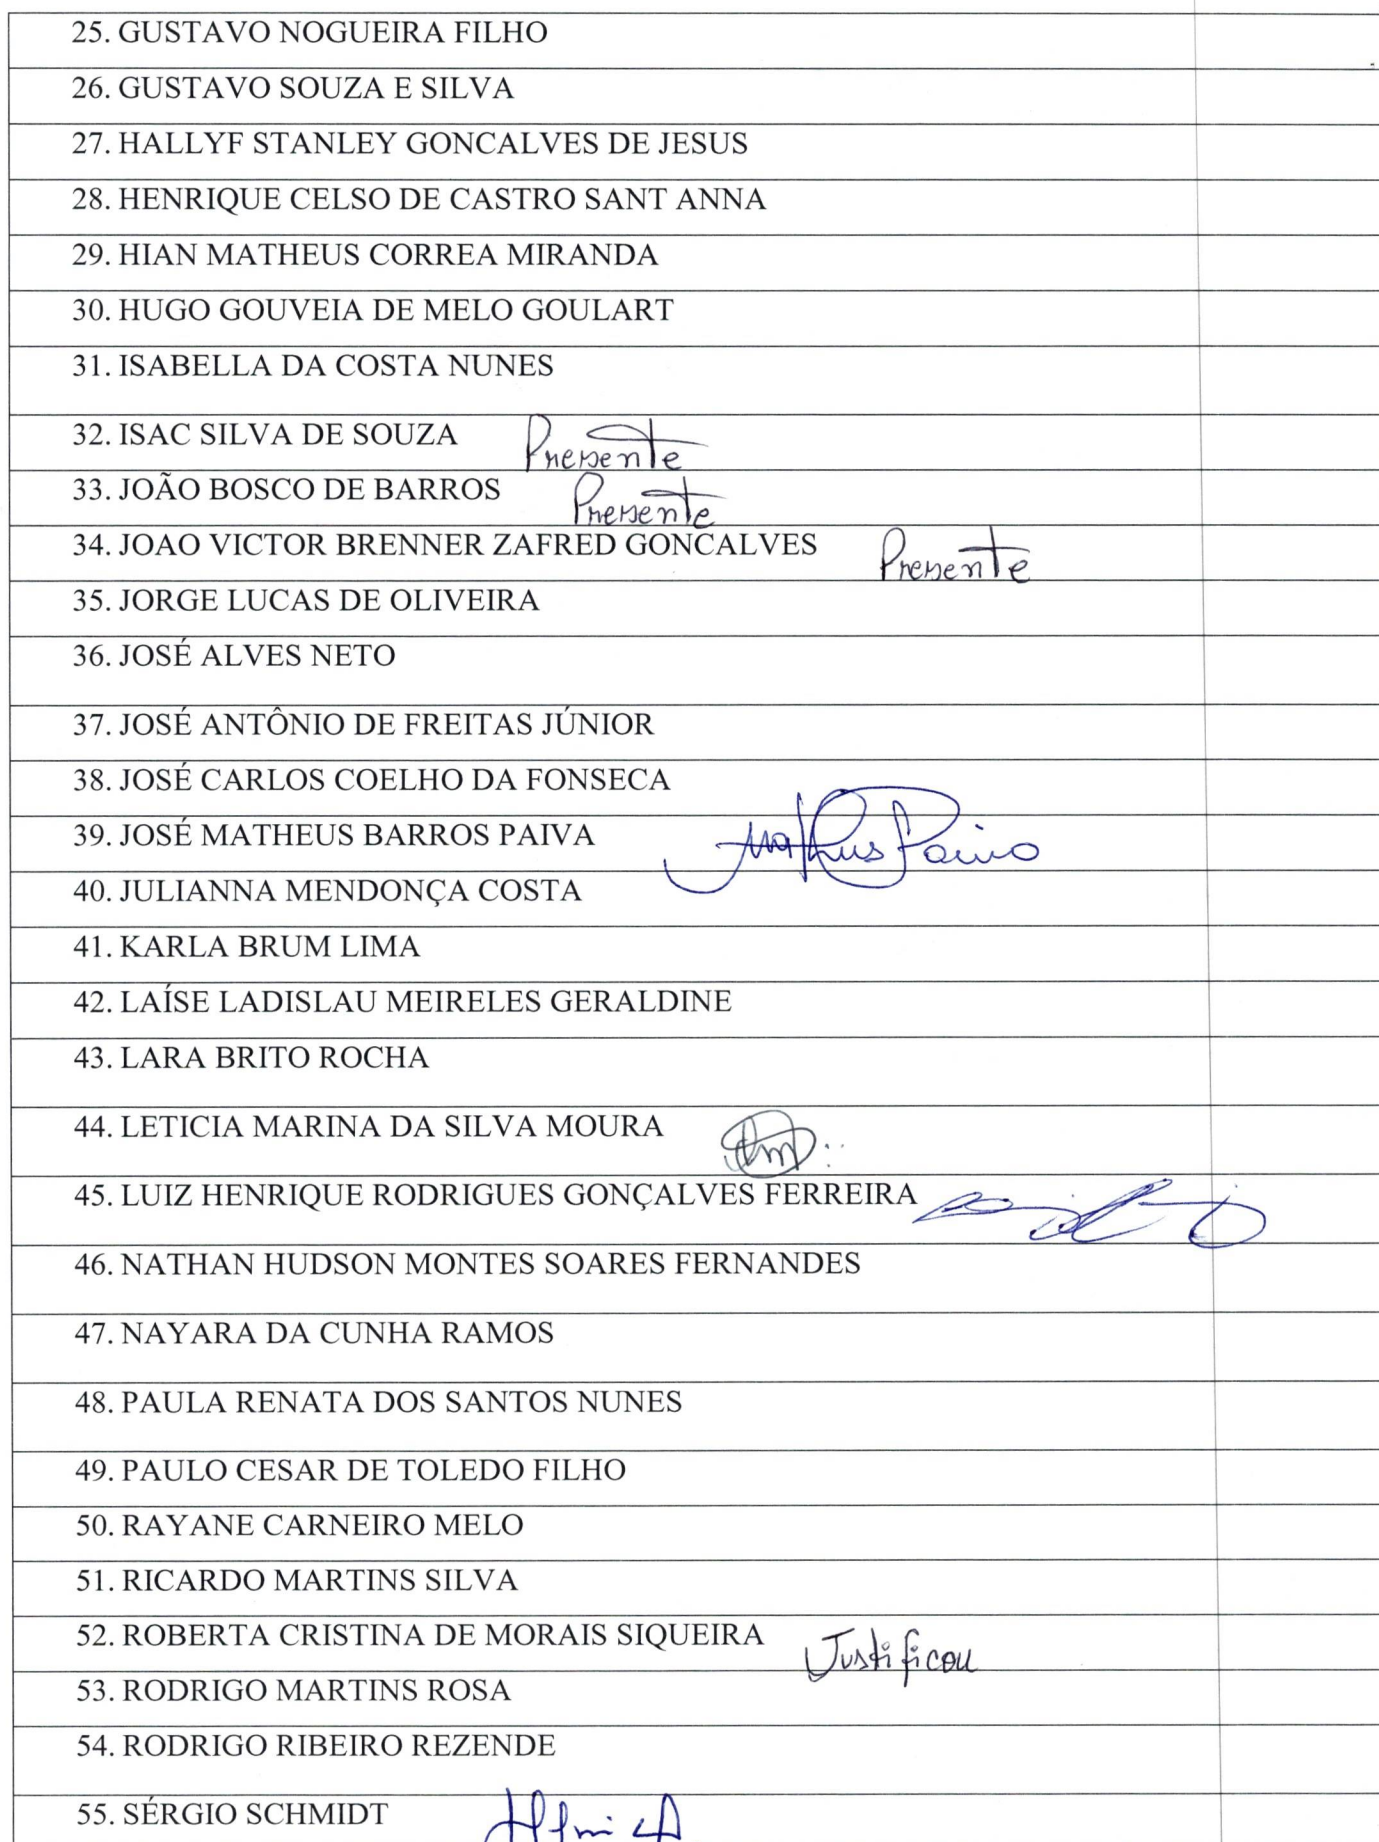 25. GUSTAVO NOGUEIRA FILHO
26. GUSTAVO SOUZA E SILVA
27. HALLYF STANLEY GONCALVES DE JESUS
28. HENRIQUE CELSO DE CASTRO SANT ANNA
29. HIAN MATHEUS CORREA MIRANDA
30. HUGO GOUVEIA DE MELO GOULART
31. ISABELLA DA COSTA NUNES
32. ISAC SILVA DE SOUZA Presente
33. JOÃO BOSCO DE BARROS Presente
34. JOAO VICTOR BRENNER ZAFRED GONCALVES Presente
35. JORGE LUCAS DE OLIVEIRA
36. JOSÉ ALVES NETO
37. JOSÉ ANTÔNIO DE FREITAS JÚNIOR
38. JOSÉ CARLOS COELHO DA FONSECA
39. JOSÉ MATHEUS BARROS PAIVA Matheus Paiva
40. JULIANNA MENDONÇA COSTA
41. KARLA BRUM LIMA
42. LAÍSE LADISLAU MEIRELES GERALDINE
43. LARA BRITO ROCHA
44. LETICIA MARINA DA SILVA MOURA
45. LUIZ HENRIQUE RODRIGUES GONÇALVES FERREIRA
46. NATHAN HUDSON MONTES SOARES FERNANDES
47. NAYARA DA CUNHA RAMOS
48. PAULA RENATA DOS SANTOS NUNES
49. PAULO CESAR DE TOLEDO FILHO
50. RAYANE CARNEIRO MELO
51. RICARDO MARTINS SILVA
52. ROBERTA CRISTINA DE MORAIS SIQUEIRA Justificou
53. RODRIGO MARTINS ROSA
54. RODRIGO RIBEIRO REZENDE
55. SÉRGIO SCHMIDT